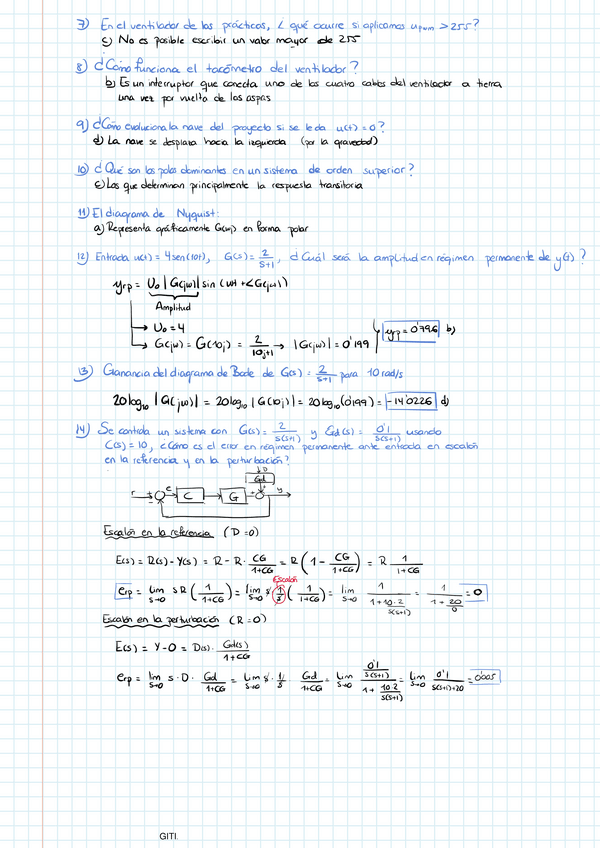 7) En el ventilador de las prácticas, ¿ qué ocurre si aplicamos upwm > 255?
c) No es posible escribir un valor mayor de 255
8) ¿Cómo funciona el tacómetro del ventilador?
b) Es un interruptor que conecta uno de los cuatro cables del ventilador a tierra
una vez por vuelta de las aspas
9) ¿Cómo evoluciona la nave del proyecto si se le da u(t)=0?
d) La nave se desplaza hacia la izquierda (por la gravedad)
10) ¿ Qué son los polos dominantes en un sistema de orden superior?
c) Los que determinan principalmente la respuesta transitoria
11) El diagrama de Nyquist:
a) Representa gráficamente G(wj) en forma polar
12) Entrada u(t) = 4 sen(10t), G(s) = 2/(s+1), ¿ Cuál será la amplitud en régimen permanente de y(t) ?
yrp = U0 |G(jw)| sin (wt + ∠G(jw))
Amplitud
→ U0 = 4
→ G(jw) = G(10j) = 2/(10j+1) → |G(jw)| = 0'199 yp = 0'796 b)
13) Ganancia del diagrama de Bode de G(s) = 2/(s+1) para 10 rad/s
20 log10 |G(jw)| = 20 log10 |G(10j)| = 20 log10 (0'199) = -14'0226 d)
14) Se controla un sistema con G(s) = 2/(s(s+1)) y Gd(s) = 0'1/(s(s+1)) usando
C(s) = 10, ¿Cómo es el error en régimen permanente ante entrada en escalón
en la referencia y en la perturbación?
D
Gd
r + - e C G + + y
Escalón en la referencia (D=0)
E(s) = R(s) - Y(s) = R - R · CG/(1+CG) = R (1 - CG/(1+CG)) = R 1/(1+CG)
Escalón
erp = lim s→0 sR (1/(1+CG)) = lim s→0 s (1/s) (1/(1+CG)) = lim s→0 1/(1 + 10·2/(s(s+1))) = 1/(1 + 20/0) = 0
Escalón en la perturbación (R=0)
E(s) = Y - 0 = D(s) · Gd(s)/(1+CG)
erp = lim s→0 s · D · Gd/(1+CG) = lim s→0 s · 1/s Gd/(1+CG) = lim s→0 (0'1/(s(s+1)))/(1 + 10·2/(s(s+1))) = lim s→0 0'1/(s(s+1)+20) = 0'005
GITI